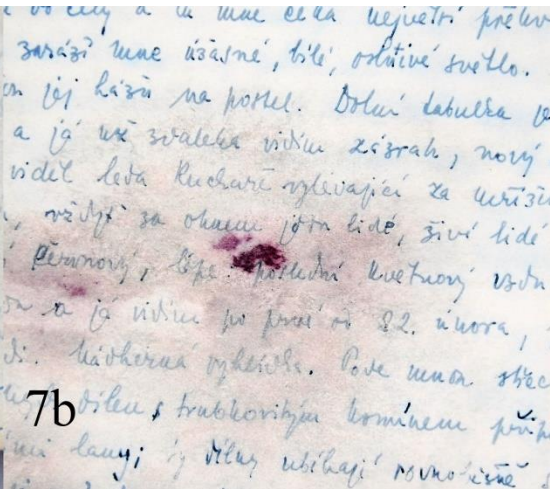 a tu mne čeká největší překv
zaráží mne úžasné, bílé, oslnivé světlo.
jej házím na postel. Dolní tabulka je
a já už zdaleka vidím zázrak, nový
viděl leda kuchaře vylévající za mříží
, vždyť za oknem jsou lidé, živí lidé
červnový, lépe: poslední květnový vzdu
a já vidím po prvé od 22. února,
nádherná vyhlídka. Pode mnou střec
dílen s trubkovitým komínem přip
lany; dílny ubíhají rovnoběžně
7b